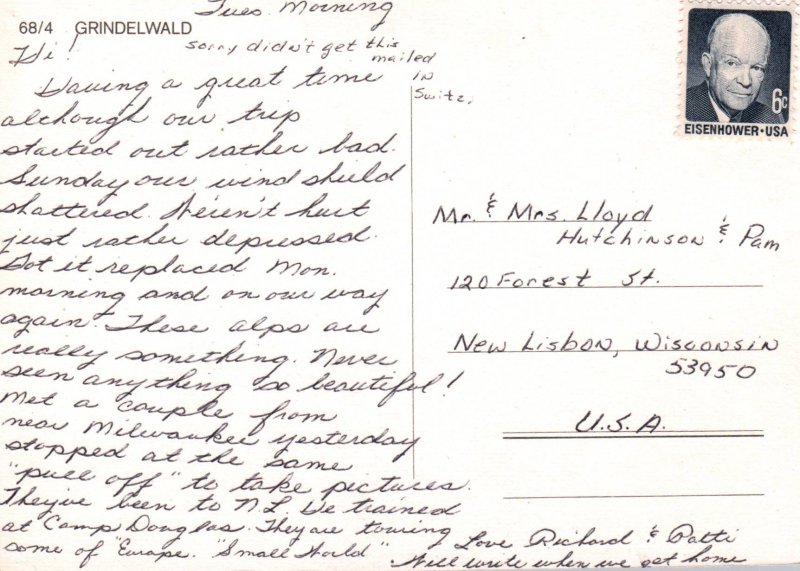 68/4 GRINDELWALD
Tues. Morning
sorry didn't get this
mailed
in
Switz.
Hi!
Having a great time
although our trip
started out rather bad.
Sunday our wind shield
shattered. Weren't hurt
just rather depressed.
Got it replaced Mon.
morning and on our way
again. These alps are
really something. Never
seen anything so beautiful!
Met a couple from
near Milwaukee yesterday
stopped at the same
"pull off" to take pictures.
They've been to N.L. He trained
at Camp Douglas. They are touring
some of "Europe. "Small World"
Love Richard & Patti
Will write when we get home
6c
EISENHOWER·USA
Mr. & Mrs. Lloyd
Hutchinson & Pam
120 Forest St.
New Lisbon, Wisconsin
53950
U.S.A.